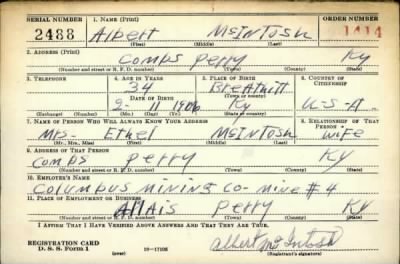 SERIAL NUMBER 1. NAME (Print) ORDER NUMBER
2488 Albert McIntosh 1414
(First) (Middle) (Last)
2. ADDRESS (Print)
Combs Perry Ky
(Number and street or R. F. D. number) (Town) (County) (State)
3. TELEPHONE 4. AGE IN YEARS 5. PLACE OF BIRTH 6. COUNTRY OF CITIZENSHIP
34 Breathitt
DATE OF BIRTH (Town or county)
2 11 1906 Ky U-S-A.
(Exchange) (Number) (Mo.) (Day) (Yr.) (State or country)
7. NAME OF PERSON WHO WILL ALWAYS KNOW YOUR ADDRESS 8. RELATIONSHIP OF THAT PERSON
Mrs- Ethel McIntosh Wife
(Mr., Mrs., Miss) (First) (Middle) (Last)
9. ADDRESS OF THAT PERSON
Combs Perry Ky
(Number and street or R. F. D. number) (Town) (County) (State)
10. EMPLOYER'S NAME
Columbus Mining Co- Mine #4
11. PLACE OF EMPLOYMENT OR BUSINESS
Allais Perry Ky
(Number and street or R. F. D. number) (Town) (County) (State)
I AFFIRM THAT I HAVE VERIFIED ABOVE ANSWERS AND THAT THEY ARE TRUE.
REGISTRATION CARD
D. S. S. Form 1 (over) 16—17105 Albert McIntosh
(Registrant's signature)